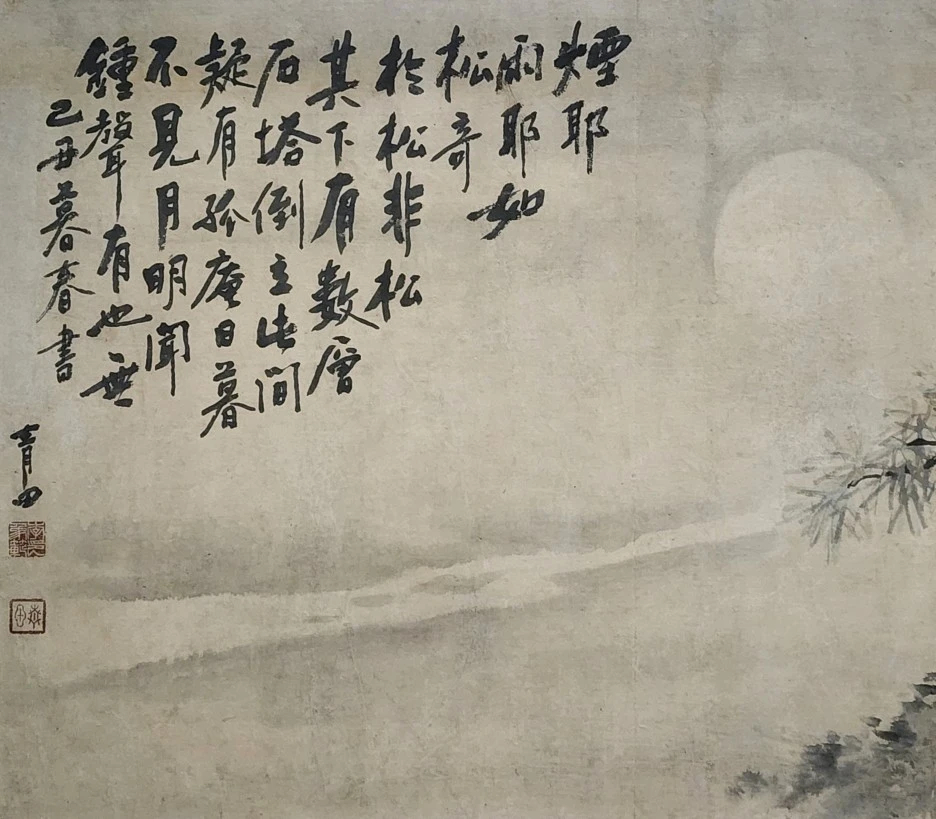 煙耶
雨耶如
松奇
於松非松
其下有數層
石塔倒立此間
疑有孤庵日暮
不見月明聞
鍾聲有也無
己丑暮春書
青田